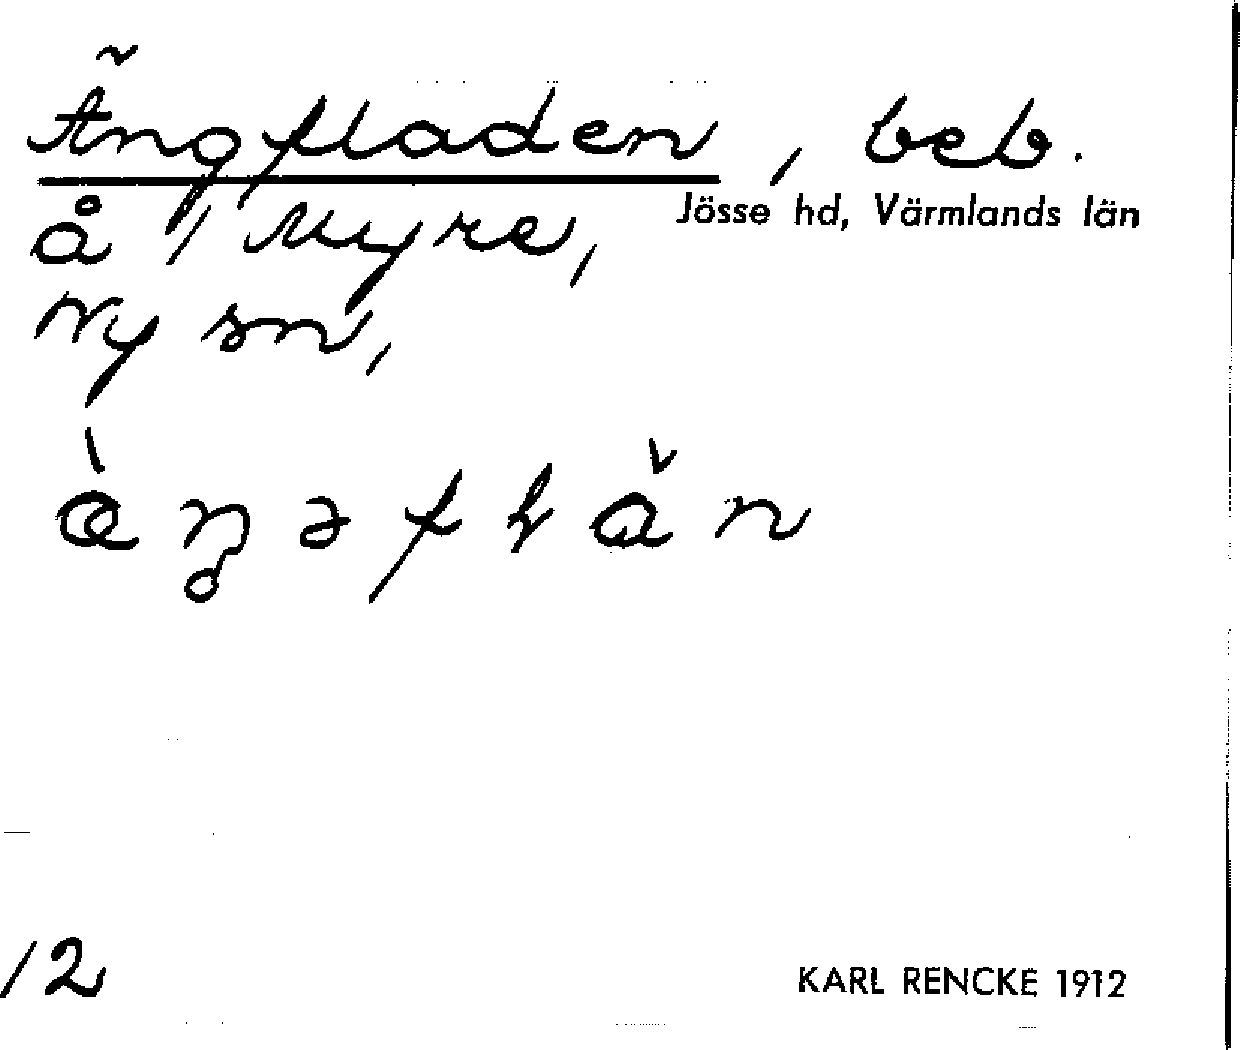 Ängfladen, beb.
Jösse hd, Värmlands län
å 1/1 Myre,
Ny sn,
/2
KARL RENCKE 1912